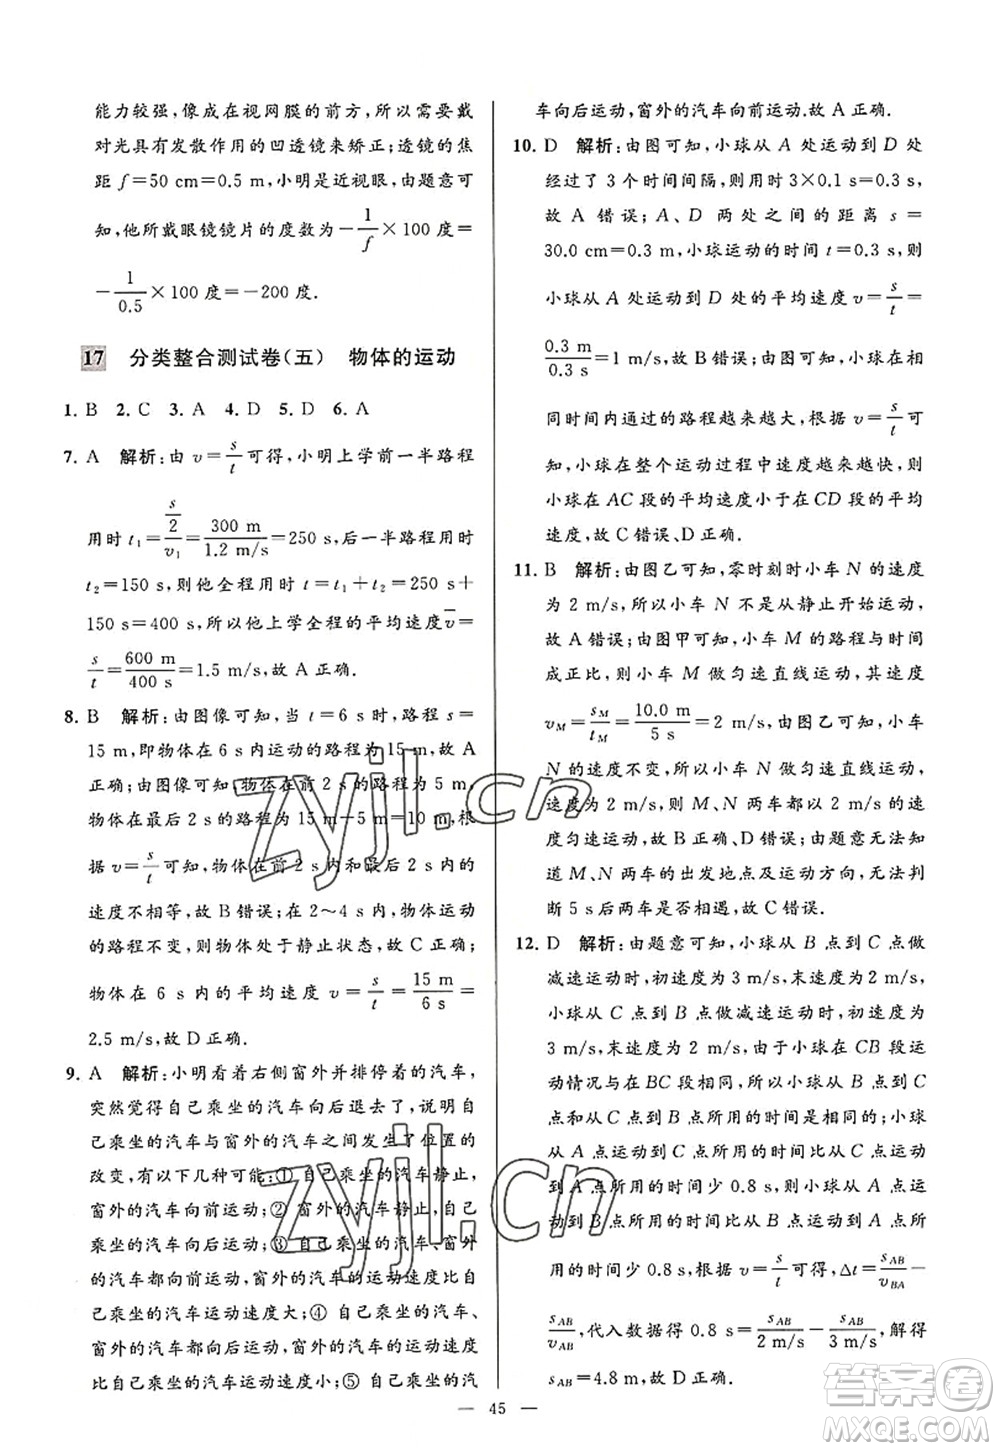 能力较强,像成在视网膜的前方,所以需要戴
对光具有发散作用的凹透镜来矫正;透镜的焦
距 f=50 cm=0.5 m,小明是近视眼,由题意可
知,他所戴眼镜镜片的度数为-1/f×100 度=
-1/0.5×100 度=-200 度.
17 分类整合测试卷(五) 物体的运动
1. B 2. C 3. A 4. D 5. D 6. A
7. A 解析:由 v=s/t 可得,小明上学前一半路程
用时 t₁=(s/2)/v₁=300 m/1.2 m/s=250 s,后一半路程用时
t₂=150 s,则他全程用时 t=t₁+t₂=250 s+
150 s=400 s,所以他上学全程的平均速度v̅=
s/t=600 m/400 s=1.5 m/s,故 A 正确.
8. B 解析:由图像可知,当 t=6 s 时,路程 s=
15 m,即物体在 6 s 内运动的路程为 15 m,故 A
正确;由图像可知,物体在前 2 s 的路程为 5 m,
物体在最后 2 s 的路程为 15 m-5 m=10 m,根
据 v=s/t 可知,物体在前 2 s 和最后 2 s 内的
速度不相等,故 B 错误;在 2~4 s 内,物体运动
的路程不变,则物体处于静止状态,故 C 正确;
物体在 6 s 内的平均速度 v=s/t=15 m/6 s=
2.5 m/s,故 D 正确.
9. A 解析:小明看着右侧窗外并排停着的汽车,
突然觉得自己乘坐的汽车向后退去了,说明自
己乘坐的汽车与窗外的汽车之间发生了位置的
改变,有以下几种可能:① 自己乘坐的汽车静止,
窗外的汽车向前运动;② 自己乘坐的汽车静止,窗
外的汽车向后运动;③ 自己乘坐的汽车、窗外
的汽车都向前运动,窗外的汽车运动速度比自
己乘坐的汽车运动速度大;④ 自己乘坐的汽车、
窗外的汽车都向后运动,自己乘坐的汽车速度
比窗外的汽车运动速度大;⑤ 自己乘坐的汽
车向后运动,窗外的汽车向前运动.故 A 正确.
10. D 解析:由图可知,小球从 A 处运动到 D 处
经过了 3 个时间间隔,则用了 3×0.1 s=0.3 s,
故 A 错误;A、D 两处之间的距离 s=
30.0 cm=0.3 m,小球运动的时间 t=0.3 s,则
小球从 A 处运动到 D 处的平均速度 v=s/t=
0.3 m/0.3 s=1 m/s,故 B 错误;由图可知,小球在相
同时间内通过的路程越来越大,根据 v=s/t 可
知,小球在整个运动过程中速度越来越快,则
小球在 AC 段的平均速度小于在 CD 段的平均
速度,故 C 错误、D 正确.
11. B 解析:由图乙可知,零时刻时小车 N 的速度
为 2 m/s,所以小车 N 不是从静止开始运动,
故 A 错误;由图甲可知,小车 M 的路程与时间
成正比,则小车 M 做匀速直线运动,其速度
v_M=s_M/t_M=10.0 m/5 s=2 m/s,由图乙可知,小车
N 的速度不变,所以小车 N 做匀速直线运动,
速度为 2 m/s,则 M、N 两车都以 2 m/s 的速
度匀速运动,故 B 正确、D 错误;由题意无法知
道 M、N 两车的出发地点及运动方向,无法判
断 5 s 后两车是否相遇,故 C 错误.
12. D 解析:由题意可知,小球从 B 点到 C 点做
减速运动时,初速度为 3 m/s,末速度为 2 m/s,
小球从 A 点到 B 点做减速运动时,初速度为
3 m/s,末速度为 2 m/s,由于小球在 CB 段运
动情况与在 BC 段相同,所以小球从 B 点到 C
点和从 C 点到 B 点所用的时间是相同的;小球
从 A 点到 C 点所用的时间比从 C 点运动到
A 点所用的时间少 0.8 s,则小球从 A 点运
动到 B 点所用的时间比从 B 点运动到 A 点所
用的时间少 0.8 s,根据 v=s/t 可得,Δt=s_AB/v_BA-
s_AB/v_AB,代入数据得 0.8 s=s_AB/2 m/s-s_AB/3 m/s,解得
s_AB=4.8 m,故 D 正确.
— 45 —
zyjl.cn
zyjl.cn
答案圈
MXQE.COM